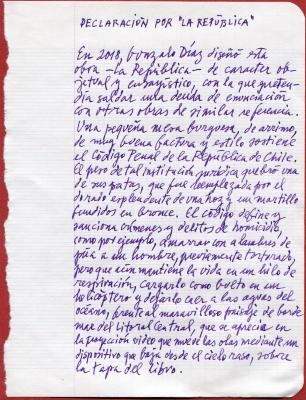 DECLARACIÓN POR "LA REPÚBLICA"
En 2018, Gonzalo Díaz diseñó esta
obra -La República- de caracter ob-
jetual y ensayístico, con la que preten-
día saldar una deuda de enunciación
con otras obras de similar referencia.
Una pequeña mesa burguesa, de arrimo,
de muy buena factura y estilo sostiene
el Código Penal de la República de Chile.
El peso de tal institución jurídica quebró una
de sus patas, que fue reemplazada por el
dorado esplendente de una hoz y un martillo
fundidos en bronce. El código define y
sanciona crímenes y delitos de homicidio,
como por ejemplo, amarrar con alambres de
púa a un hombre, previamente torturado,
pero que aún mantiene la vida en un hilo de
respiración, cargarlo como bulto en un
helicóptero y dejarlo caer a las aguas del
océano, frente al maravilloso paisaje de borde
mar del Litoral Central, que se aprecia en
la proyección video que mueve las olas mediante un
dispositivo que baja desde el cielo raso, sobre
la tapa del libro.